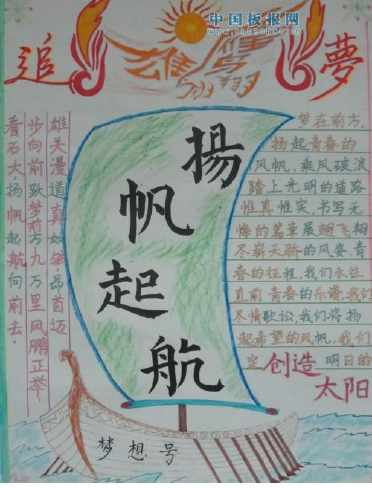 中国板报网
追
夢
揚帆起航
雄关漫道真如铁·昂首迈
步向前跃梦前方九万里风鹏正举
看石大·扬帆起航向前去·
梦在前方,
扬起青春的
风帆,乘风破浪
踏上光明的道路
惟真惟实,书写无
悔的篇章展翅飞翔
尽崭天骄的风姿青
春的征程,我们永往
直前青春的乐谱,我们
尽情歌讼,我们将扬
起希望的风帆,我们
定创造明日的
太阳
梦想号